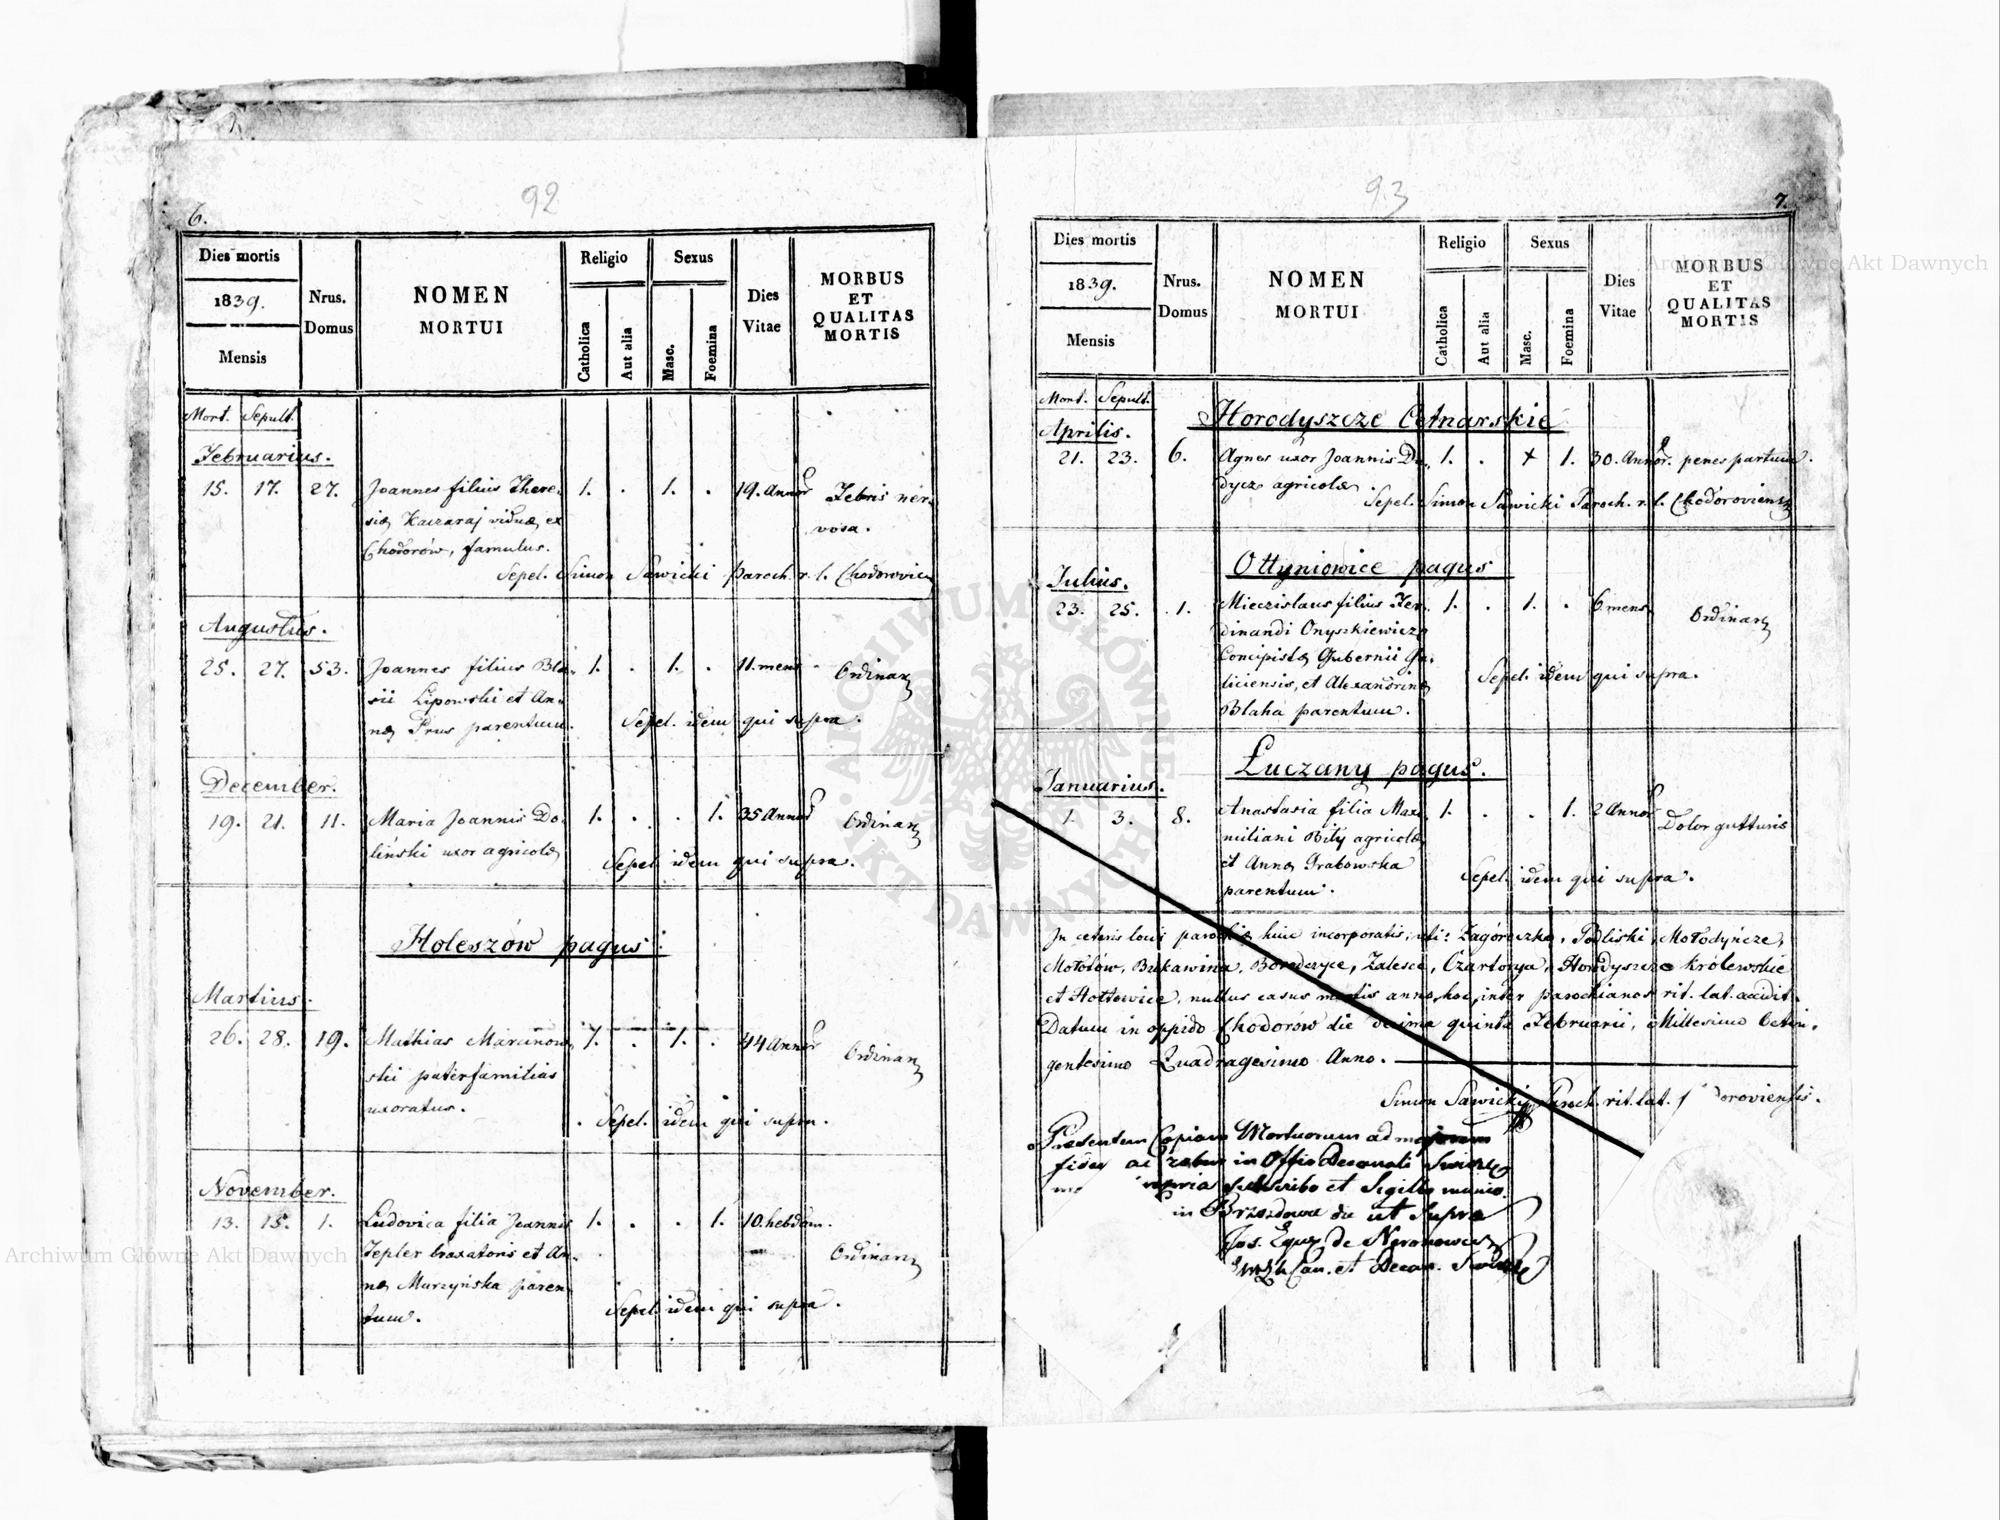 92
6.
Dies mortis
1839.
Mensis
Nrus.
Domus
NOMEN
MORTUI
Religio
Catholica
Aut alia
Sexus
Masc.
Foemina
Dies
Vitae
MORBUS
ET
QUALITAS
MORTIS
Mort. Sepult.
Februarius.
15. 17. 27. Joannes filius There- 1. . 1. . 19. Annor Febris ner-
siæ Kaczaraj viduæ, ex vosa.
Chodorów, famulus.
Sepel. Simon Sawicki Paroch. r. l. Chodorovien
Augustus.
25. 27. 53. Joannes filius Bla- 1. . 1. . 11. mens Ordinar
sii Lipowski et An-
næ Prus parentum. Sepel. idem qui supra.
December.
19. 21. 11. Maria Joannis Do- 1. . . 1. 35 Annor Ordinar
liński uxor agricolæ
Sepel. idem qui supra.
Holeszów pagus.
Martius.
26. 28. 19. Mathias Marcinow- 1. . 1. . 44 Annor Ordinar
ski paterfamilias
uxoratus.
Sepel. idem qui supra.
November.
13. 15. 1. Ludovica filia Joannis 1. . . 1. 10. hebdom.
Tepler braxatoris et An- Ordinar
næ Murzyńska paren-
tum. Sepel. idem qui supra.
93
7.
Dies mortis
1839.
Mensis
Nrus.
Domus
NOMEN
MORTUI
Religio
Catholica
Aut alia
Sexus
Masc.
Foemina
Dies
Vitae
MORBUS
ET
QUALITAS
MORTIS
Mort. Sepult.
Horodyszcze Cetnarskie
Aprilis.
21. 23. 6. Agnes uxor Joannis Du- 1. . + 1. 30. Annor. penes partum.
dycz agricolæ.
Sepel. Simon Sawicki Paroch. r. l. Chodoroviens
Ottyniowice pagus
Julius.
23. 25. 1. Mieczislaus filius Fer- 1. . 1. . 6 mens Ordinar
dinandi Onyszkiewicz
Concipistæ Gubernii Ga-
liciensis, et Alexandrinæ Sepel. idem qui supra.
Blaha parentum.
Łuczany pagus.
Januarius.
1. 3. 8. Anastasia filia Maxi- 1. . . 1. 2 Annor Dolor gutturis
miliani Biły agricolæ
et Annæ Grabowska Sepel. idem qui supra.
parentum.
In ceteris locis parochiæ huic incorporatis, uti: Zagóreczko, Podliski, Mołodyńcze,
Mołotów, Bukawina, Borodczyce, Zalesce, Czartorya, Horodyszcze Królewskie
et Hołtowice, nullus casus mortis anno hoc, inter parochianos rit. lat. accidit.
Datum in oppido Chodorów die decima quinta Februarii, Millesimo Octin-
gentesimo Quadragesimo Anno.
Simon Sawicki Paroch. rit. lat. doroviensis.
Præsentem Copiam Mortuorum ad majorem
fidem ac robur in Offio Decanali
propria subscribo et Sigillo munio.
in Brzozdowce die ut supra
Jos. Eques de
Can. et Decan.
ARCHIWUM GŁÓWNE AKT DAWNYCH
Archiwum Główne Akt Dawnych
Archiwum Główne Akt Dawnych